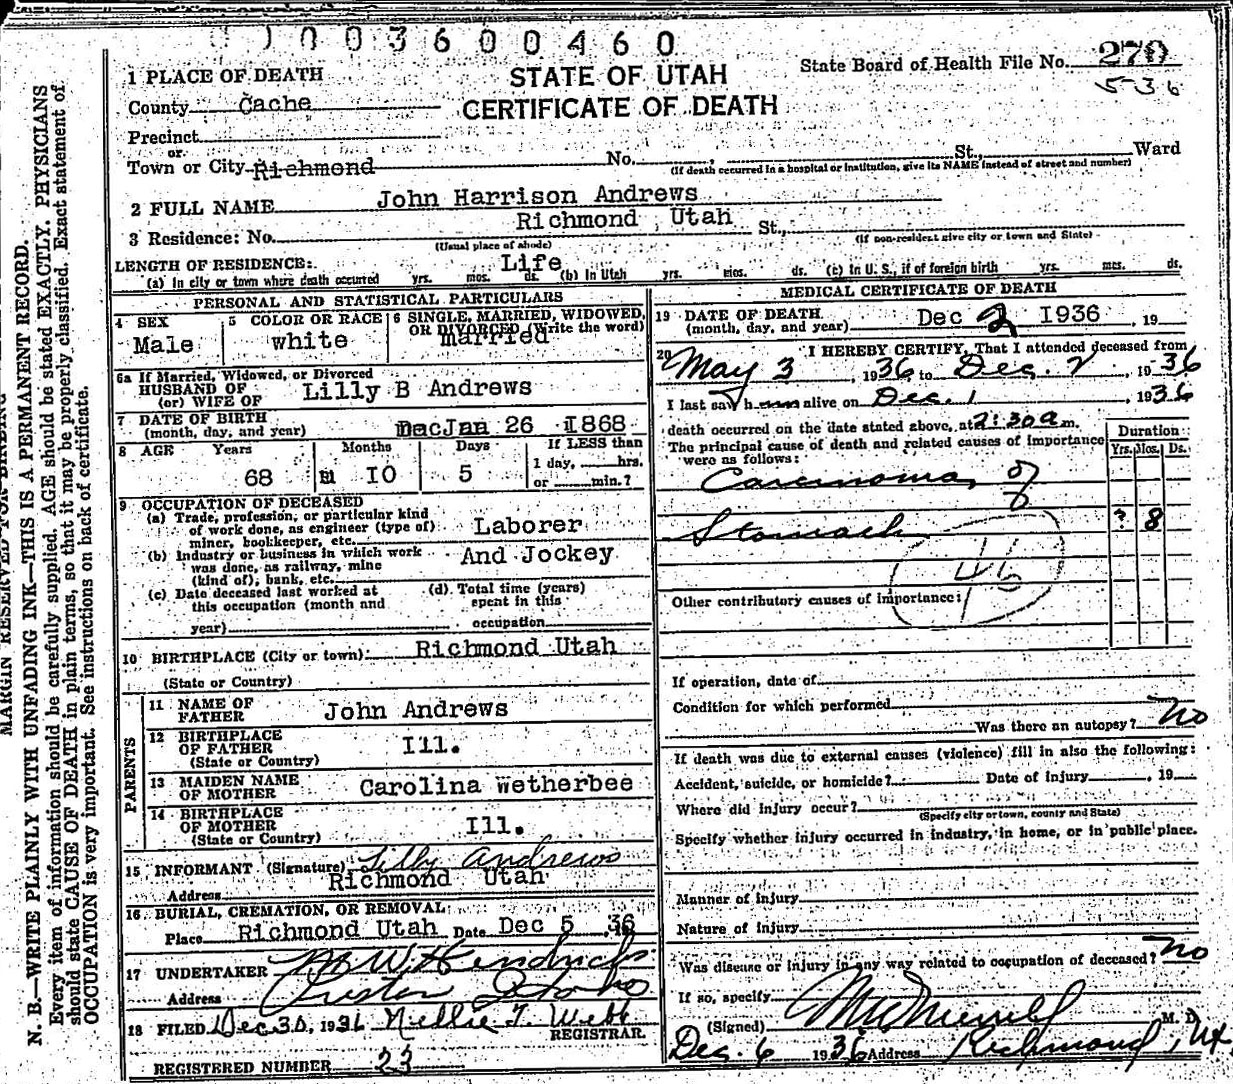 003600460
1 PLACE OF DEATH
STATE OF UTAH
State Board of Health File No. 270
County Cache
CERTIFICATE OF DEATH
536
Precinct
or
Town or City Richmond No. , St., Ward
(If death occurred in a hospital or institution, give its NAME instead of street and number)
2 FULL NAME John Harrison Andrews
3 Residence: No. Richmond , Utah St.,
(Usual place of abode) (If non-resident give city or town and State)
LENGTH OF RESIDENCE: Life
(a) In city or town where death occurred yrs. mos. ds. (b) In Utah yrs. mos. ds. (c) In U. S., if of foreign birth yrs. mos. ds.
PERSONAL AND STATISTICAL PARTICULARS
4 SEX Male
5 COLOR OR RACE white
6 SINGLE, MARRIED, WIDOWED,
OR DIVORCED (Write the word)
married
6a If Married, Widowed, or Divorced
HUSBAND OF
(or) WIFE OF Lilly B Andrews
7 DATE OF BIRTH
(month, day, and year) Jan 26 1868
8 AGE Years Months Days If LESS than
68 10 5 1 day, hrs.
or min.?
9 OCCUPATION OF DECEASED
(a) Trade, profession, or particular kind
of work done, as engineer (type of)
miner, bookkeeper, etc. Laborer
(b) Industry or business in which work And Jockey
was done, as railway, mine
(kind of), bank, etc.
(c) Date deceased last worked at
this occupation (month and
year)
(d) Total time (years)
spent in this
occupation
10 BIRTHPLACE (City or town) Richmond Utah
(State or Country)
PARENTS
11 NAME OF
FATHER John Andrews
12 BIRTHPLACE
OF FATHER Ill.
(State or Country)
13 MAIDEN NAME
OF MOTHER Carolina wetherbee
14 BIRTHPLACE
OF MOTHER Ill.
(State or Country)
15 INFORMANT (Signature) Lilly Andrews
Address Richmond Utah
16 BURIAL, CREMATION, OR REMOVAL
Place Richmond Utah Date Dec 5 , 36
17 UNDERTAKER W. Hendricks
Address Preston Idaho
18 FILED Dec 30, 1936 Nellie T. Webb
REGISTRAR.
REGISTERED NUMBER 23
MEDICAL CERTIFICATE OF DEATH
19 DATE OF DEATH
(month, day, and year) Dec 2 1936 , 19
20 I HEREBY CERTIFY, That I attended deceased from
May 3 , 1936, to Dec. 2 , 1936
I last saw h alive on Dec. 1 , 1936
death occurred on the date stated above, at 2:30 a m.
The principal cause of death and related causes of importance
were as follows:
Duration
Yrs. Mos. Ds.
Carcinoma of
Stomach ? 8
46
Other contributory causes of importance:
If operation, date of
Condition for which performed
Was there an autopsy? No
If death was due to external causes (violence) fill in also the following:
Accident, suicide, or homicide? Date of injury , 19
Where did injury occur?
(Specify city or town, county and State)
Specify whether injury occurred in industry, in home, or in public place.
Manner of Injury
Nature of Injury
Was disease or injury in any way related to occupation of deceased? No
If so, specify
(Signed) M. D.
Dec. 6 1936 Address Richmond, Ut.
MARGIN RESERVED FOR BINDING
N. B.—WRITE PLAINLY WITH UNFADING INK—THIS IS A PERMANENT RECORD.
Every item of information should be carefully supplied. AGE should be stated EXACTLY. PHYSICIANS
should state CAUSE OF DEATH in plain terms, so that it may be properly classified. Exact statement of
OCCUPATION is very important. See instructions on back of certificate.